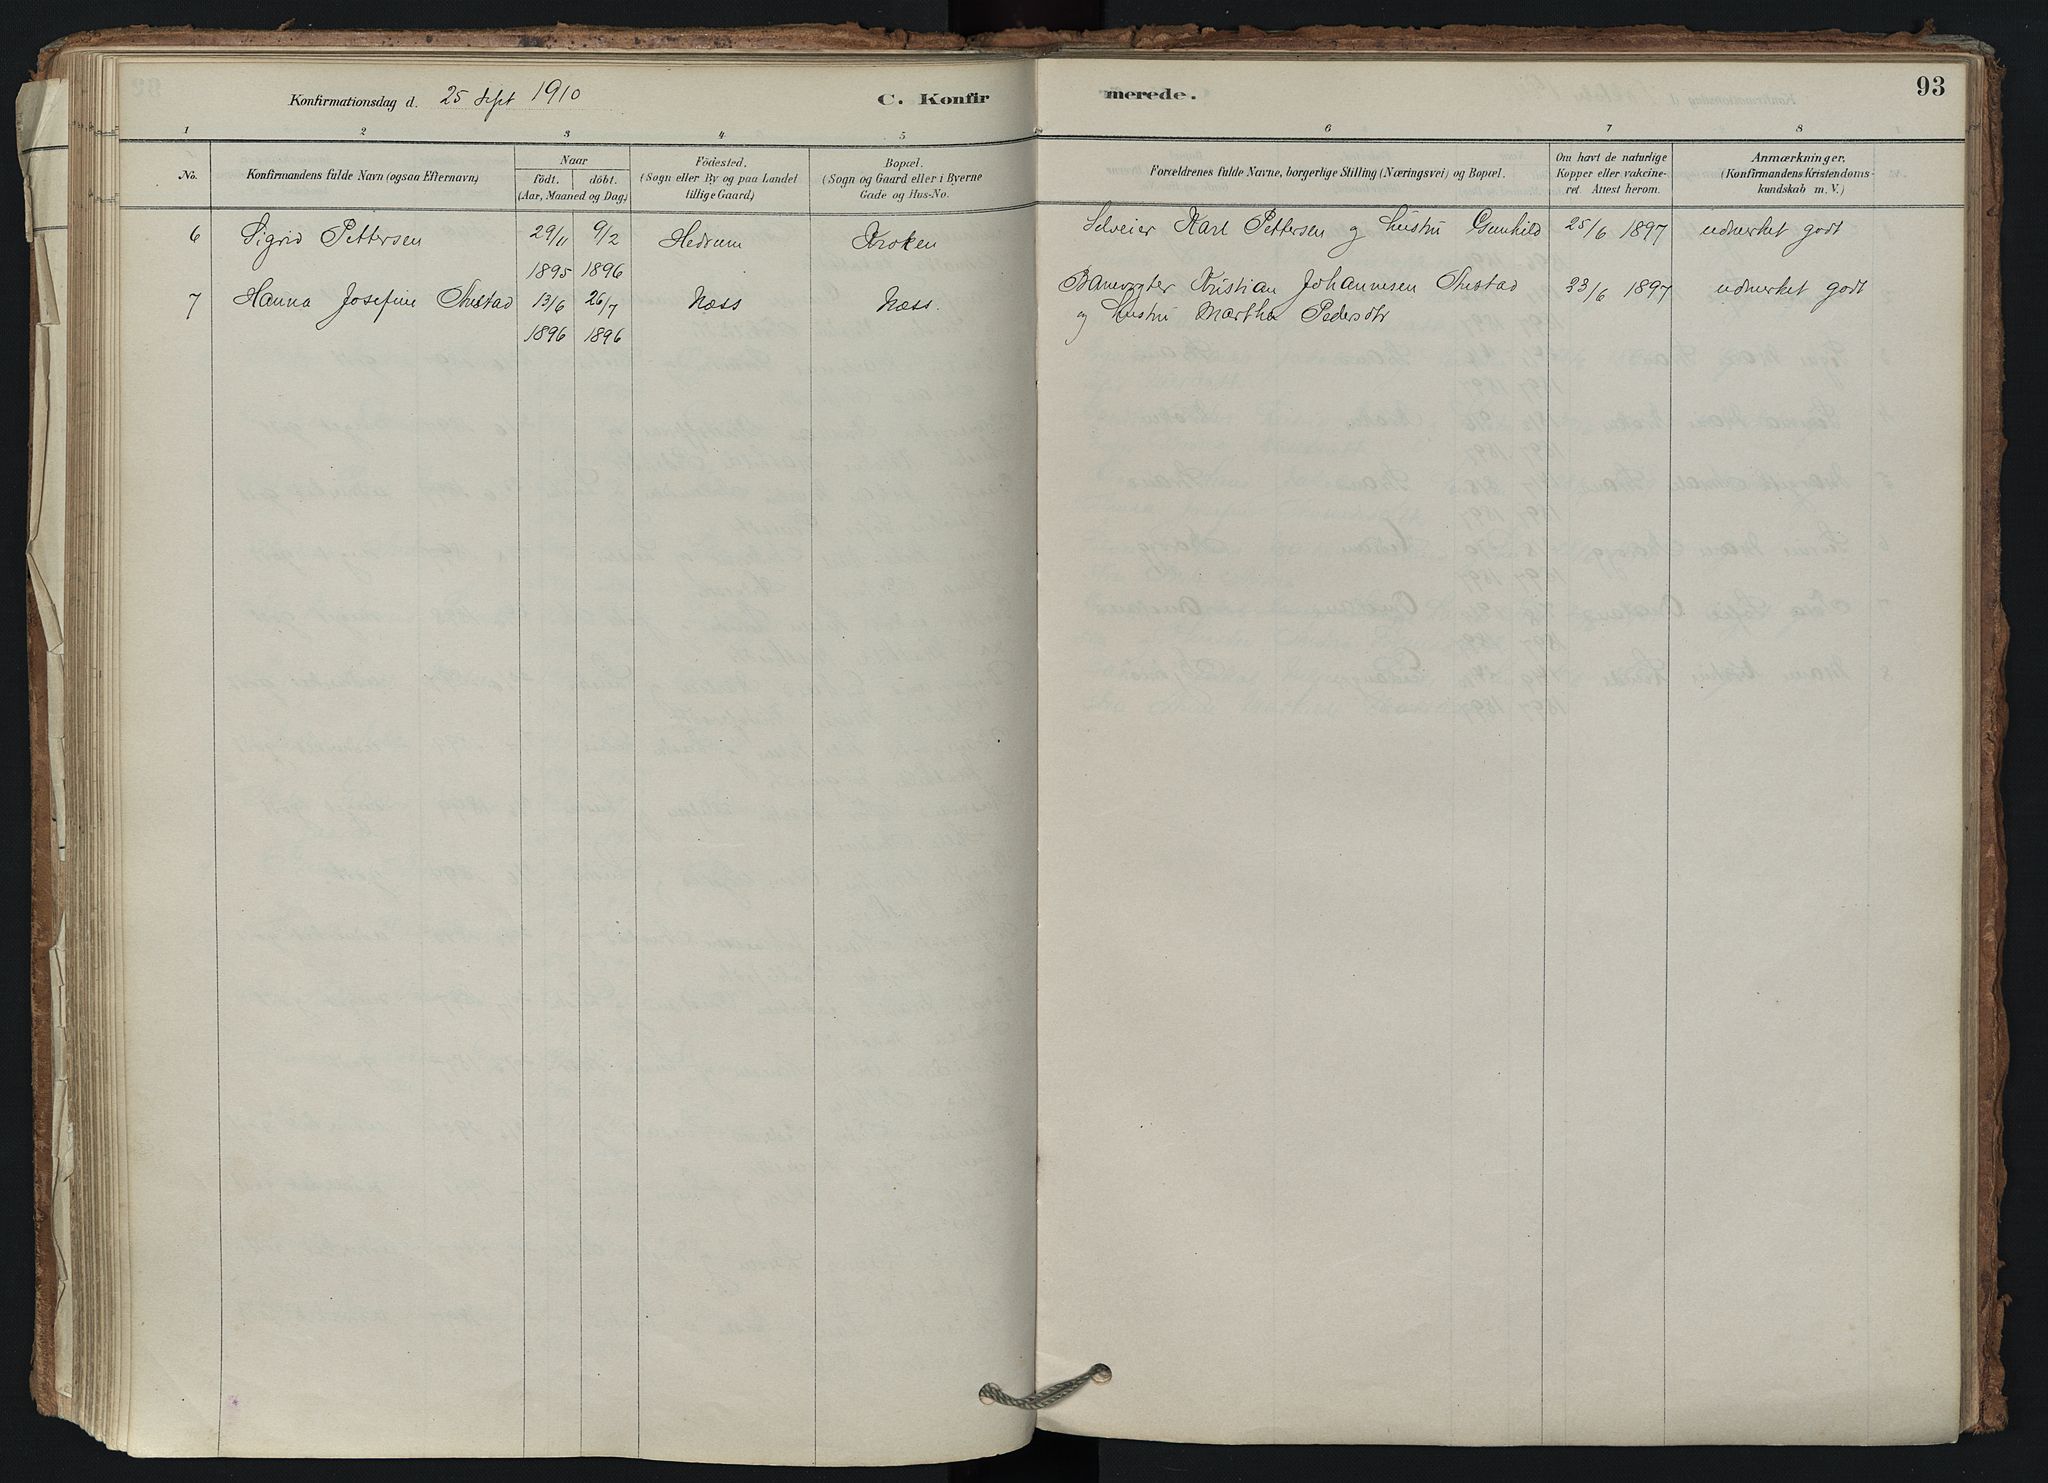 Konfirmationsdag d. 25 Sept 1910
C. Konfir merede.
93
1 2 3 4 5 6 7 8
No.
Konfirmandens fulde Navn (ogsaa Efternavn)
Naar
födt. döbt.
(Aar, Maaned og Dag.)
Födested.
(Sogn eller By og paa Landet
tillige Gaard.)
Bopæl.
(Sogn og Gaard eller i Byerne
Gade og Hus-No.
Forældrenes fulde Navne, borgerlige Stilling (Næringsvei) og Bopæl.
Om havt de naturlige
Kopper eller vakcine-
ret. Attest herom.
Anmærkninger.
(Konfirmandens Kristendoms-
kundskab m. V.)
6 Sigrid Pettersen 29/11 9/2 Hedrum Kroken Selveier Karl Pettersen og Hustru Gunhild 25/6 1897 udmerket godt
1895 1896
7 Hanna Josefine 13/6 26/7 Næss Næss. Kristian Johannesen 23/6 1897 udmerket godt
og Hustru Martha Pedersdtr
1896 1896